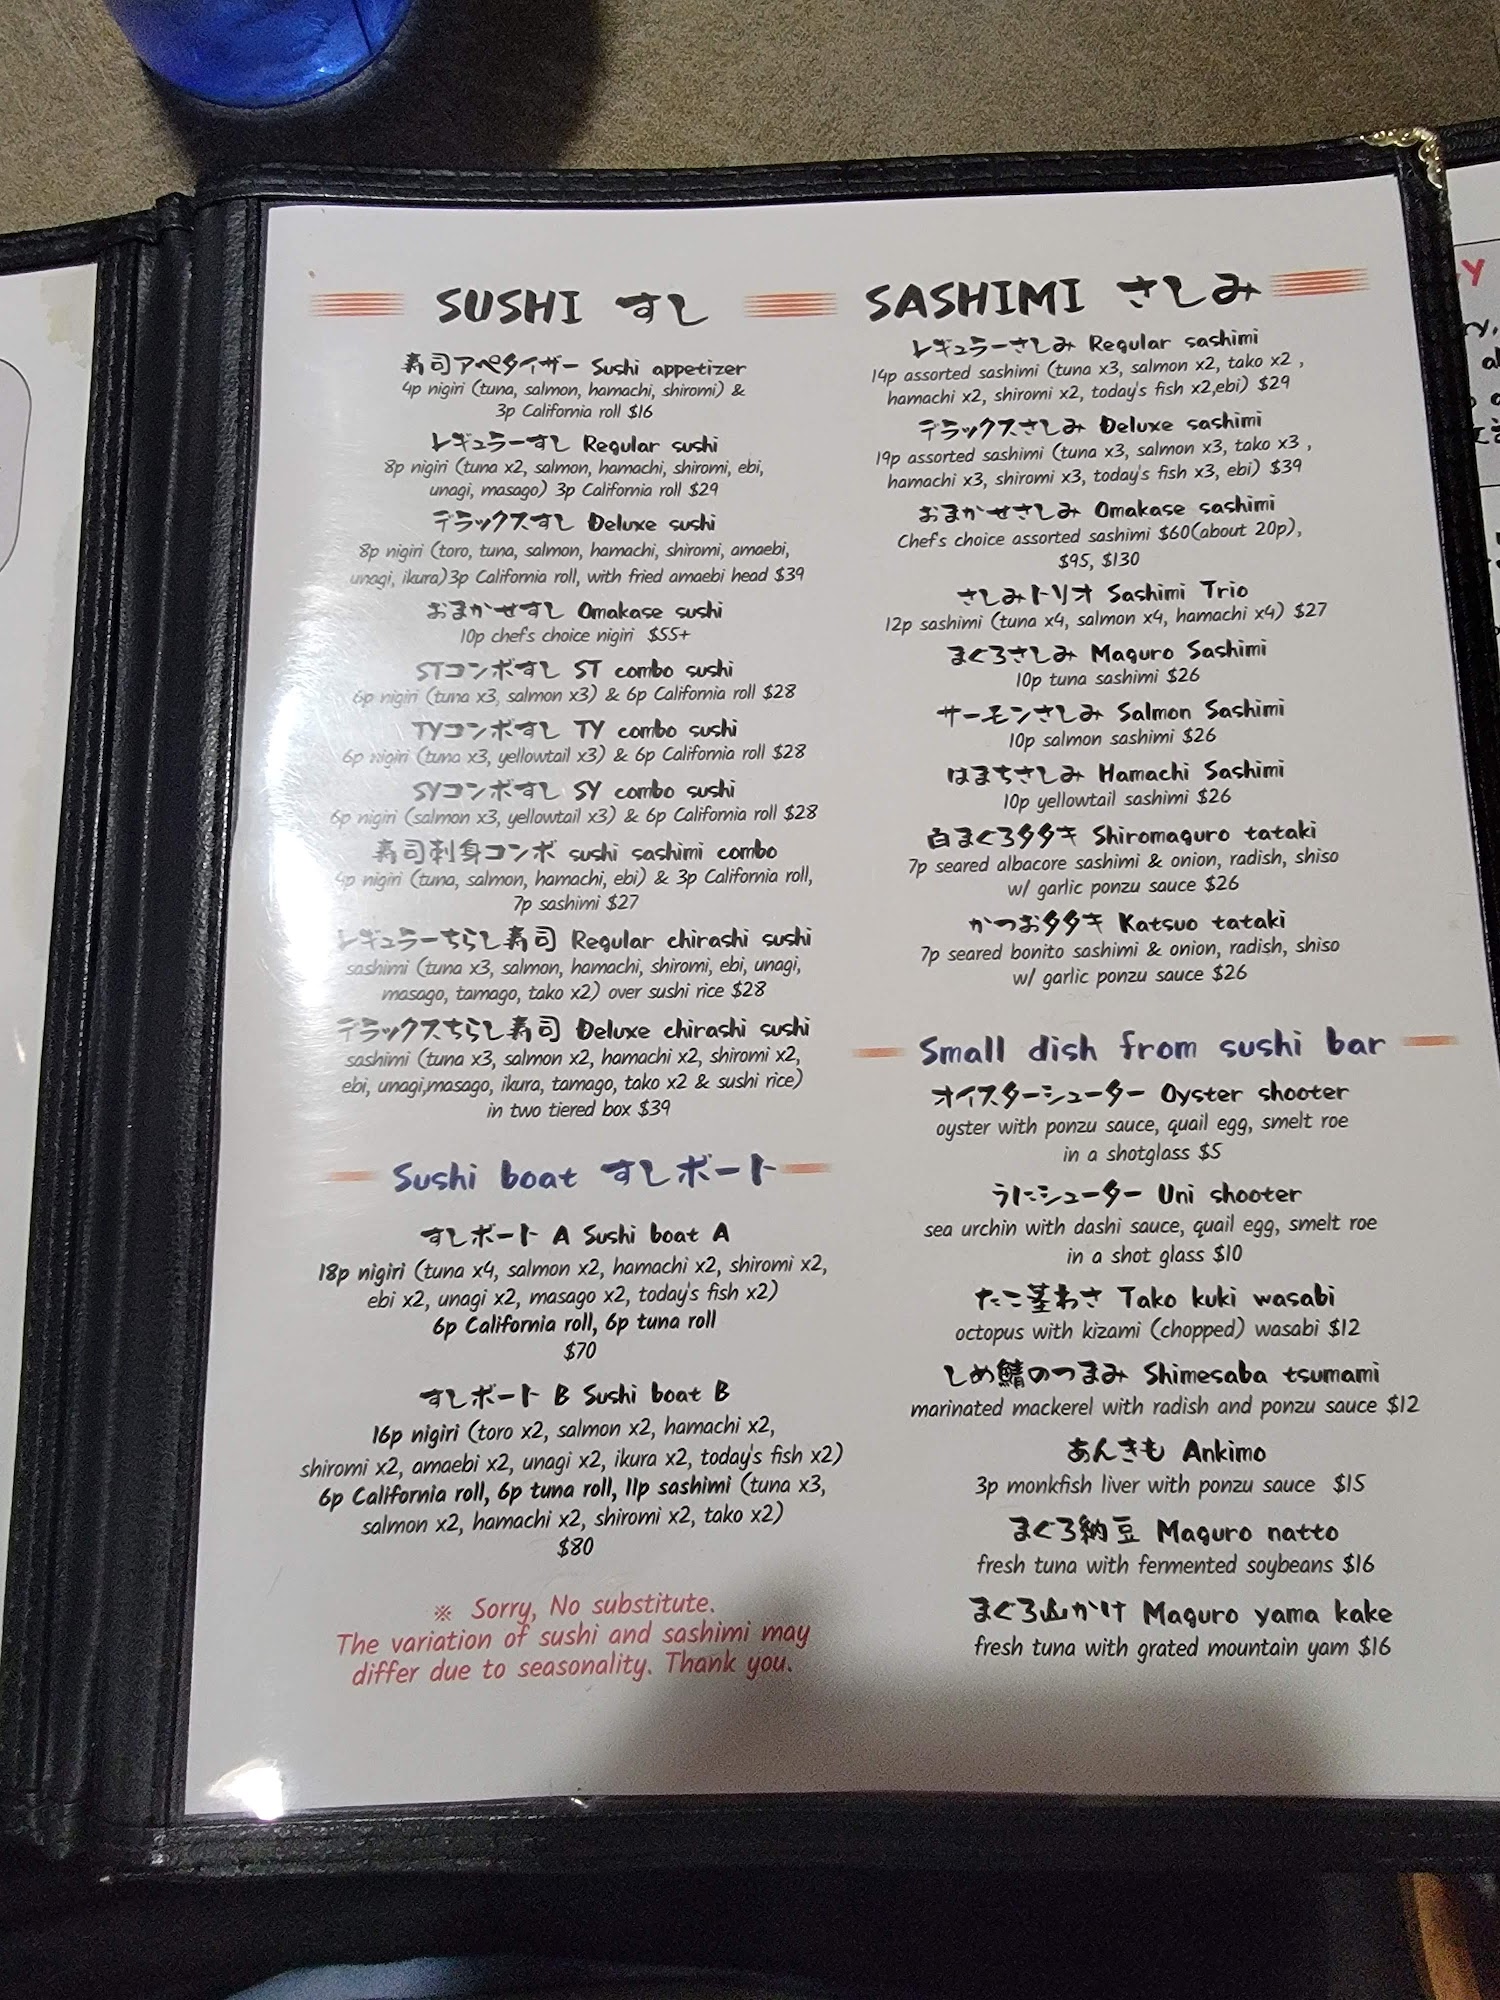 SUSHI すし
寿司アペタイザー Sushi appetizer
4p nigiri (tuna, salmon, hamachi, shiromi) &
3p California roll $16
レギュラーすし Regular sushi
8p nigiri (tuna x2, salmon, hamachi, shiromi, ebi,
unagi, masago) 3p California roll $29
デラックスすし Deluxe sushi
8p nigiri (toro, tuna, salmon, hamachi, shiromi, amaebi,
unagi, ikura)3p California roll, with fried amaebi head $39
おまかせすし Omakase sushi
10p chef's choice nigiri $55+
STコンボすし ST combo sushi
6p nigiri (tuna x3, salmon x3) & 6p California roll $28
TYコンボすし TY combo sushi
6p nigiri (tuna x3, yellowtail x3) & 6p California roll $28
SYコンボすし SY combo sushi
6p nigiri (salmon x3, yellowtail x3) & 6p California roll $28
寿司刺身コンボ sushi sashimi combo
4p nigiri (tuna, salmon, hamachi, ebi) & 3p California roll,
7p sashimi $27
レギュラーちらし寿司 Regular chirashi sushi
sashimi (tuna x3, salmon, hamachi, shiromi, ebi, unagi,
masago, tamago, tako x2) over sushi rice $28
デラックスちらし寿司 Deluxe chirashi sushi
sashimi (tuna x3, salmon x2, hamachi x2, shiromi x2,
ebi, unagi,masago, ikura, tamago, tako x2 & sushi rice)
in two tiered box $39
Sushi boat すしボート
すしボート A Sushi boat A
18p nigiri (tuna x4, salmon x2, hamachi x2, shiromi x2,
ebi x2, unagi x2, masago x2, today's fish x2)
6p California roll, 6p tuna roll
$70
すしボート B Sushi boat B
16p nigiri (toro x2, salmon x2, hamachi x2,
shiromi x2, amaebi x2, unagi x2, ikura x2, today's fish x2)
6p California roll, 6p tuna roll, 11p sashimi (tuna x3,
salmon x2, hamachi x2, shiromi x2, tako x2)
$80
※ Sorry, No substitute.
The variation of sushi and sashimi may
differ due to seasonality. Thank you.
SASHIMI さしみ
レギュラーさしみ Regular sashimi
14p assorted sashimi (tuna x3, salmon x2, tako x2 ,
hamachi x2, shiromi x2, today's fish x2,ebi) $29
デラックスさしみ Deluxe sashimi
19p assorted sashimi (tuna x3, salmon x3, tako x3 ,
hamachi x3, shiromi x3, today's fish x3, ebi) $39
おまかせさしみ Omakase sashimi
Chef's choice assorted sashimi $60(about 20p),
$95, $130
さしみトリオ Sashimi Trio
12p sashimi (tuna x4, salmon x4, hamachi x4) $27
まぐろさしみ Maguro Sashimi
10p tuna sashimi $26
サーモンさしみ Salmon Sashimi
10p salmon sashimi $26
はまちさしみ Hamachi Sashimi
10p yellowtail sashimi $26
白まぐろタタキ Shiromaguro tataki
7p seared albacore sashimi & onion, radish, shiso
w/ garlic ponzu sauce $26
かつおタタキ Katsuo tataki
7p seared bonito sashimi & onion, radish, shiso
w/ garlic ponzu sauce $26
Small dish from sushi bar
オイスターシューター Oyster shooter
oyster with ponzu sauce, quail egg, smelt roe
in a shotglass $5
うにシューター Uni shooter
sea urchin with dashi sauce, quail egg, smelt roe
in a shot glass $10
たこ茎わさ Tako kuki wasabi
octopus with kizami (chopped) wasabi $12
しめ鯖のつまみ Shimesaba tsumami
marinated mackerel with radish and ponzu sauce $12
あんきも Ankimo
3p monkfish liver with ponzu sauce $15
まぐろ納豆 Maguro natto
fresh tuna with fermented soybeans $16
まぐろ山かけ Maguro yama kake
fresh tuna with grated mountain yam $16